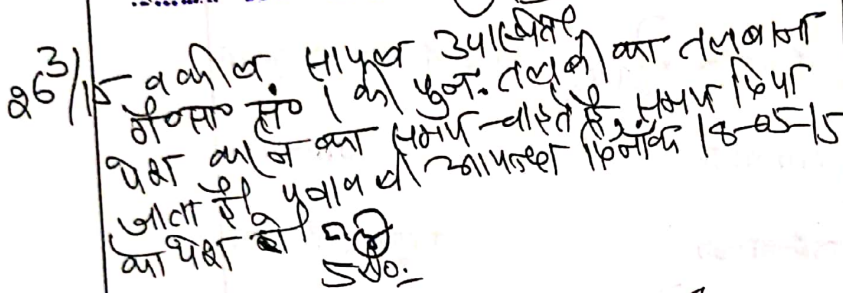 26/3/15 वकील सायल उपस्थित
गै०सा० सं० 1 की पुन: तलबी का तलबाना
पेश करने का समय चाहते है, समय दिया
जाता है। जवाब व आपत्ति दिनांक 18-05-15
को पेश हो।